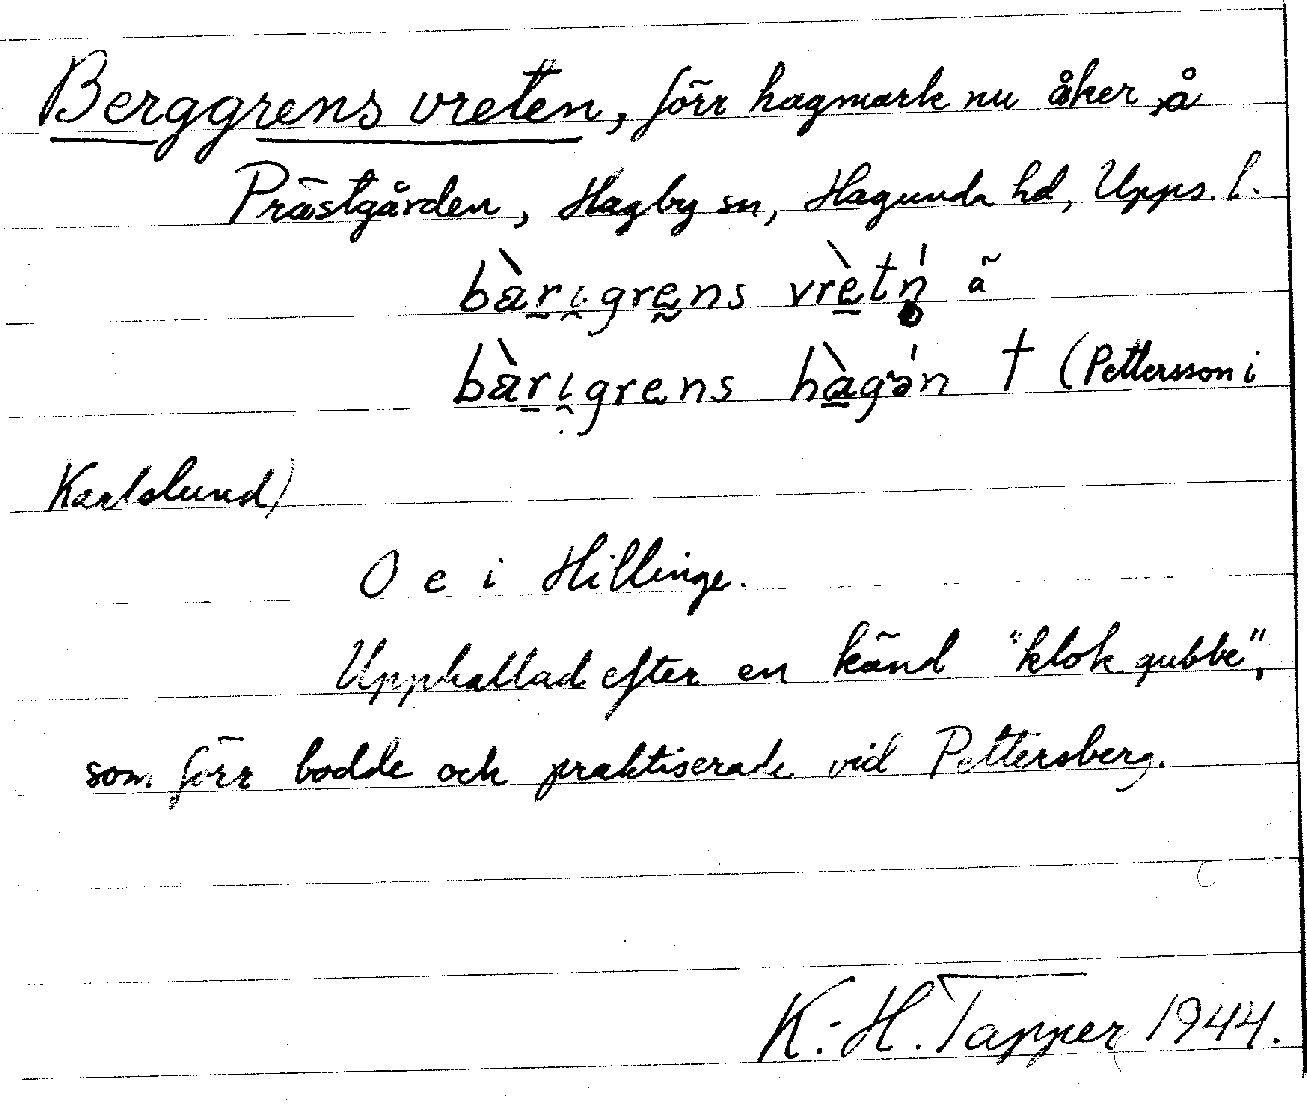 Berggrens vreten, förr hagmark nu åker å
Prästgården, Hagby sn, Hagunda hd, Upps. l.
bàrigrens vrètn̥ ã
bàrigrens hàgən † (Pettersson i
Karlslund)
O e i Hillinge.
Uppkallad efter en känd "klok gubbe",
som förr bodde och praktiserade vid Pettersberg.
K.-H. Tapper 1944.